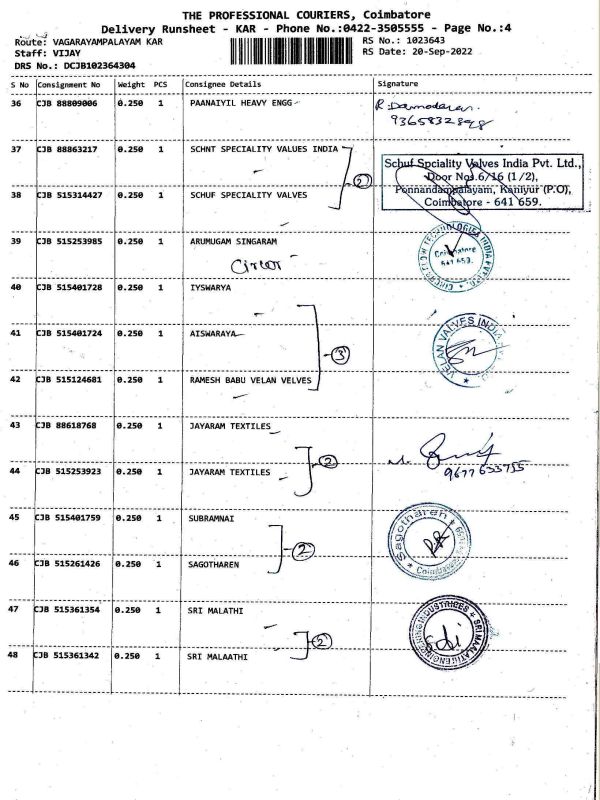 THE PROFESSIONAL COURIERS, Coimbatore
Delivery Runsheet - KAR - Phone No.:0422-3505555 - Page No.:4
Route: VAGARAYAMPALAYAM KAR
RS No.: 1023643
Staff: VIJAY
RS Date: 20-Sep-2022
DRS No.: DCJB102364304
S No Consignment No Weight PCS Consignee Details Signature
36 CJB 88809006 0.250 1 PAANAIYIL HEAVY ENGG
R. Damodaran.
9365832898
37 CJB 88863217 0.250 1 SCHNT SPECIALITY VALUES INDIA
2
Schuf Spciality Valves India Pvt. Ltd.,
Door Nos.6/16 (1/2),
Ponnandampalayam, Kaniyur (P.O),
Coimbatore - 641 659.
38 CJB 515314427 0.250 1 SCHUF SPECIALITY VALVES
39 CJB 515253985 0.250 1 ARUMUGAM SINGARAM
Circor
CIRCOR FLOW TECHNOLOGIES INDIA PVT. LTD.
Coimbatore
641 659.
40 CJB 515401728 0.250 1 IYSWARYA
41 CJB 515401724 0.250 1 AISWARAYA
3
VELAN VALVES INDIA
42 CJB 515124681 0.250 1 RAMESH BABU VELAN VELVES
43 CJB 88618768 0.250 1 JAYARAM TEXTILES
2
9677633755
44 CJB 515253923 0.250 1 JAYARAM TEXTILES
45 CJB 515401759 0.250 1 SUBRAMNAI
2
Sagotharen
Coimbatore
46 CJB 515261426 0.250 1 SAGOTHAREN
47 CJB 515361354 0.250 1 SRI MALATHI
2
SRI MALATHI ENGINEERING INDUSTRIES
48 CJB 515361342 0.250 1 SRI MALAATHI